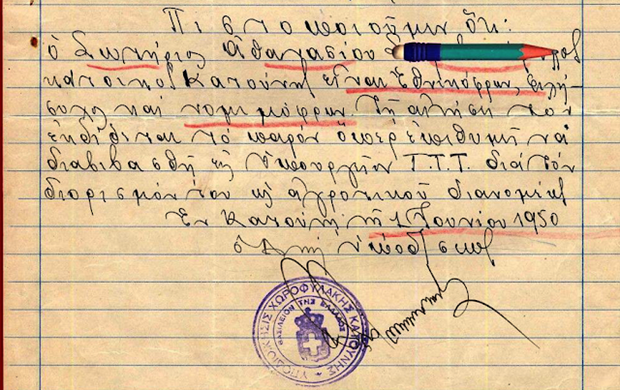 Πιστοποιοῦμεν ὅτι:
ὁ Σωτήριος Ἀθανασίου
κάτοικος Κατούνης εἶναι ἐθνικόφρων, φιλή-
συχος καὶ νομιμόφρων Τῇ αἰτήσει του
ἐκδίδεται τὸ παρὸν ὅπερ ἐπιθυμῇ νὰ
διαβιβασθῇ εἰς Ὑπουργεῖον Τ.Τ.Τ. διὰ τὸν
διορισμόν του ὡς ἀγροτικοῦ διανομέως
Ἐν Κατούνῃ τῇ 1 Ἰουνίου 1950
ΥΠΟΔΙΟΙΚΗΣΙΣ ΧΩΡΟΦΥΛΑΚΗΣ ΚΑΤΟΥΝΗΣ
ΒΑΣΙΛΕΙΟΝ ΤΗΣ ΕΛΛΑΔΟΣ